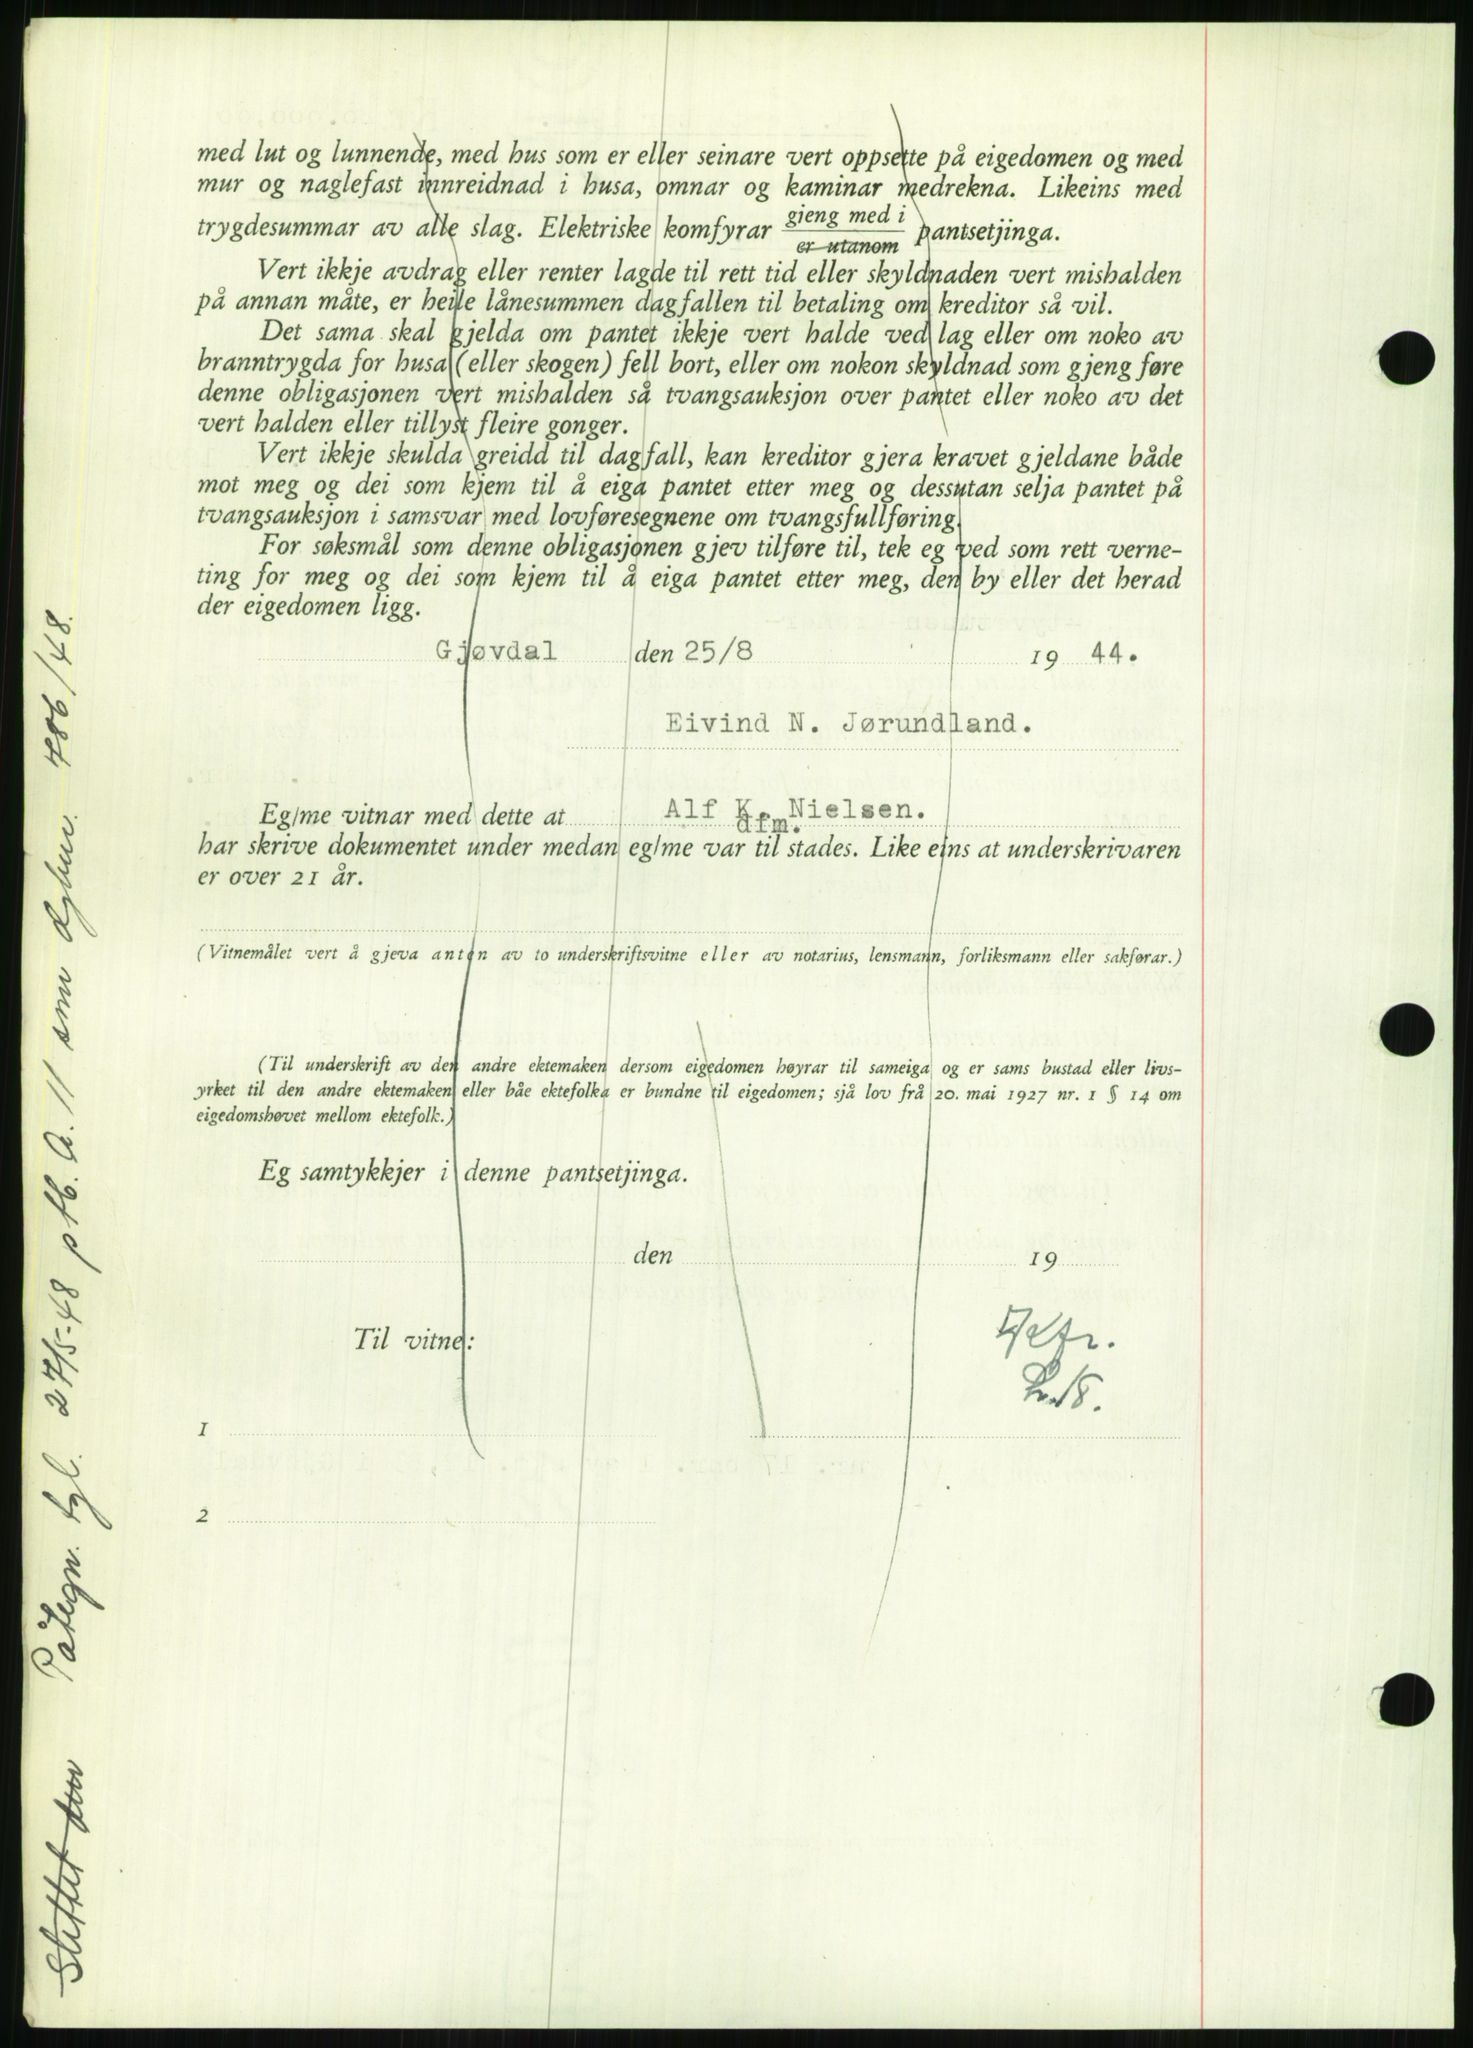 med lut og lunnende, med hus som er eller seinare vert oppsette på eigedomen og med
mur og naglefast innreidnad i husa, omnar og kaminar medrekna. Likeins med
trygdesummar av alle slag. Elektriske komfyrar gjeng med i / er utanom pantsetjinga.
Vert ikkje avdrag eller renter lagde til rett tid eller skyldnaden vert mishalden
på annan måte, er heile lånesummen dagfallen til betaling om kreditor så vil.
Det sama skal gjelda om pantet ikkje vert halde ved lag eller om noko av
branntrygda for husa (eller skogen) fell bort, eller om nokon skyldnad som gjeng føre
denne obligasjonen vert mishalden så tvangsauksjon over pantet eller noko av det
vert halden eller tillyst fleire gonger.
Vert ikkje skulda greidd til dagfall, kan kreditor gjera kravet gjeldane både
mot meg og dei som kjem til å eiga pantet etter meg og dessutan selja pantet på
tvangsauksjon i samsvar med lovføresegnene om tvangsfullføring.
For søksmål som denne obligasjonen gjev tilføre til, tek eg ved som rett verne-
ting for meg og dei som kjem til å eiga pantet etter meg, den by eller det herad
der eigedomen ligg.
Gjøvdal den 25/8 19 44.
Eivind N. Jørundland.
Eg/me vitnar med dette at Alf K. Nielsen.
dfm.
har skrive dokumentet under medan eg/me var til stades. Like eins at underskrivaren
er over 21 år.
(Vitnemålet vert å gjeva anten av to underskriftsvitne eller av notarius, lensmann, forliksmann eller sakførar.)
(Til underskrift av den andre ektemaken dersom eigedomen høyrar til sameiga og er sams bustad eller livs-
yrket til den andre ektemaken eller båe ektefolka er bundne til eigedomen; sjå lov frå 20. mai 1927 nr. 1 § 14 om
eigedomshøvet mellom ektefolk.)
Eg samtykkjer i denne pantsetjinga.
den 19
Til vitne:
1
2
Påtegn. tgl. 27/5-48 ptb. A. 11 som dgbnr. 786/48.
Slettet